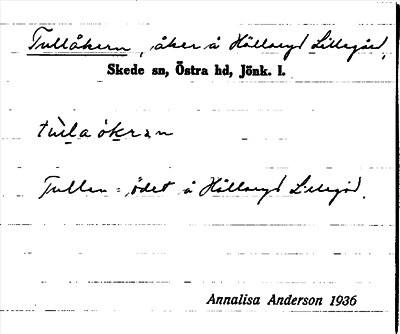 Tullåkern, åker å Hålloryd Lillegård,
Skede sn, Östra hd, Jönk. l.
tùla òkran
Tullen = ödet å Hålloryd Lillegård.
Annalisa Anderson 1936